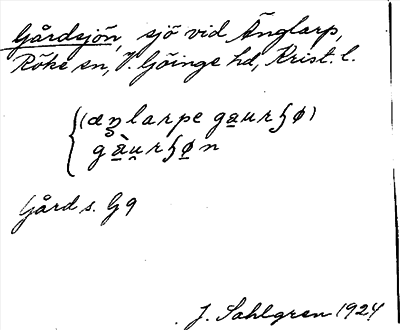 Gårdsjön, sjö vid Änglarp,
Röke sn, V. Göinge hd, Krist. l.
(æŋlarpe gaurʃø)
gàurʃøn
Gård s. G 9
J. Sahlgren 1924